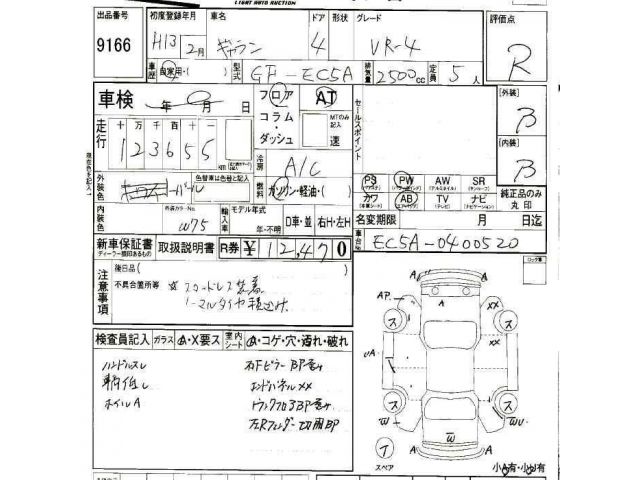 LIGHT AUTO AUCTION
出品番号 初度登録年月 車名 ドア 形状 グレード 評価点
9166 H13 2月 ギャラン 4 VR-4 R
車歴 自家用・( ) 型式 GF-EC5A 排気量 2500cc 定員 5人
車検 年 月 日 フロア AT
コラム・ダッシュ MTのみ記入 速
セールスポイント
[外装] B
[内装] B
走行 十 万 千 百 十
123655 km
冷房 A/C
燃料 ガソリン・軽油・( )
PS PW AW SR 純正品のみ丸印
カワ AB TV ナビ
外装色 色替車は色替と記入 パール
内装色 外装カラーNo. W75 輸入車 モデル年式 年・不明 D車・並 右H・左H
名変期限 月 日迄
新車保証書 取扱説明書 R券 ¥12,470
ディーラー捺印あるもの
車台No. EC5A-0400520
ロック番
注意事項 後日品( )
不具合箇所等 スタッドレス装着
ノーマルタイヤ積込み
検査員記入 ガラス A・X要ス 室内シート A・コゲ・穴・汚れ・破れ
ハンドルスレ
ホイルA
右FピラーBP歪み
エンドパネルXX
A A
AP. A A ス
ス XX
UA XX
ス ス
W WU
A W A
T
スペア
小A有・小U有